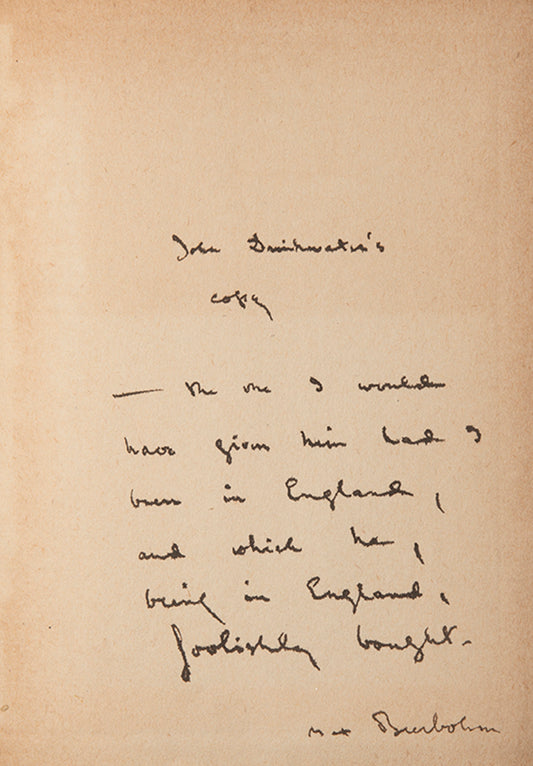 John Drinkwater's
copy
— the one I would
have given him had I
been in England,
and which he,
being in England,
foolishly bought.
Max Beerbohm